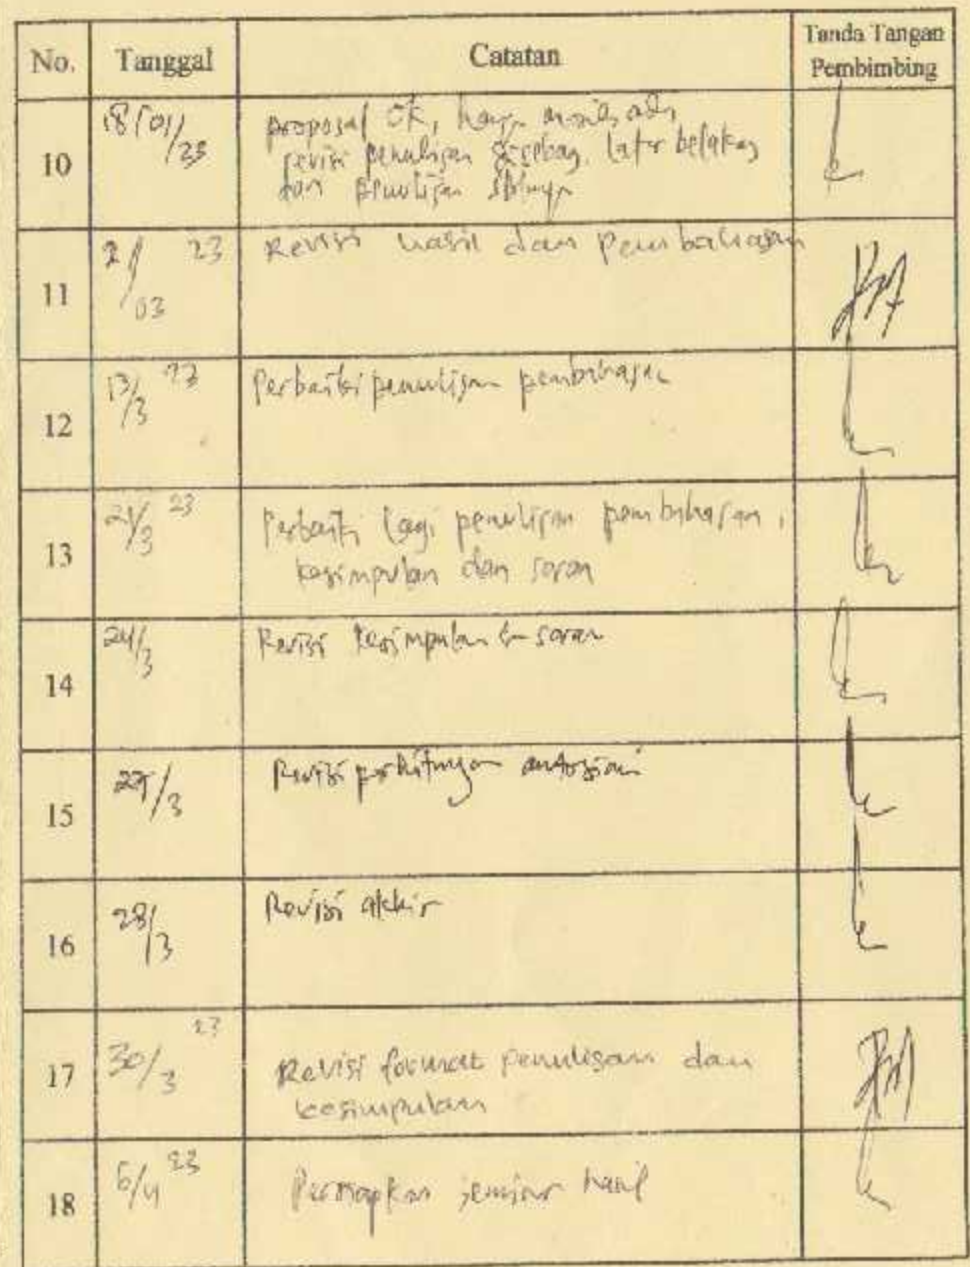 No. Tanggal Catatan Tanda Tangan
Pembimbing
10 18/01/23 proposal OK, hanya masih ada
revisi penulisan latar belakang
dan penulisan
11 2/03 23 Revisi hasil dan Pembahasan
12 13/3 23 Perbaiki penulisan pembahasan
13 21/3 23 Perbaiki lagi penulisan pembahasan,
kesimpulan dan saran
14 24/3 Revisi kesimpulan & saran
15 /3 Revisi perhitungan
16 28/3 Revisi akhir
17 30/3 23 Revisi format penulisan dan
kesimpulan
18 6/4 23 Persiapkan seminar hasil